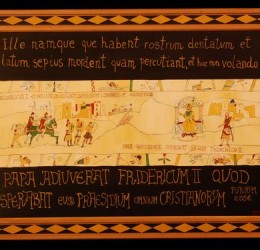 Ille namque que habent rostrum dentatum et
latum sepius mordent quam percutiant, et hoc non volando
PAPA ADIUVERAT FRIDERICUM II QUOD
SPERABAT EUM PRAESIDIUM OMNIUM CRISTIANORUM
FUTURUM
ESSE